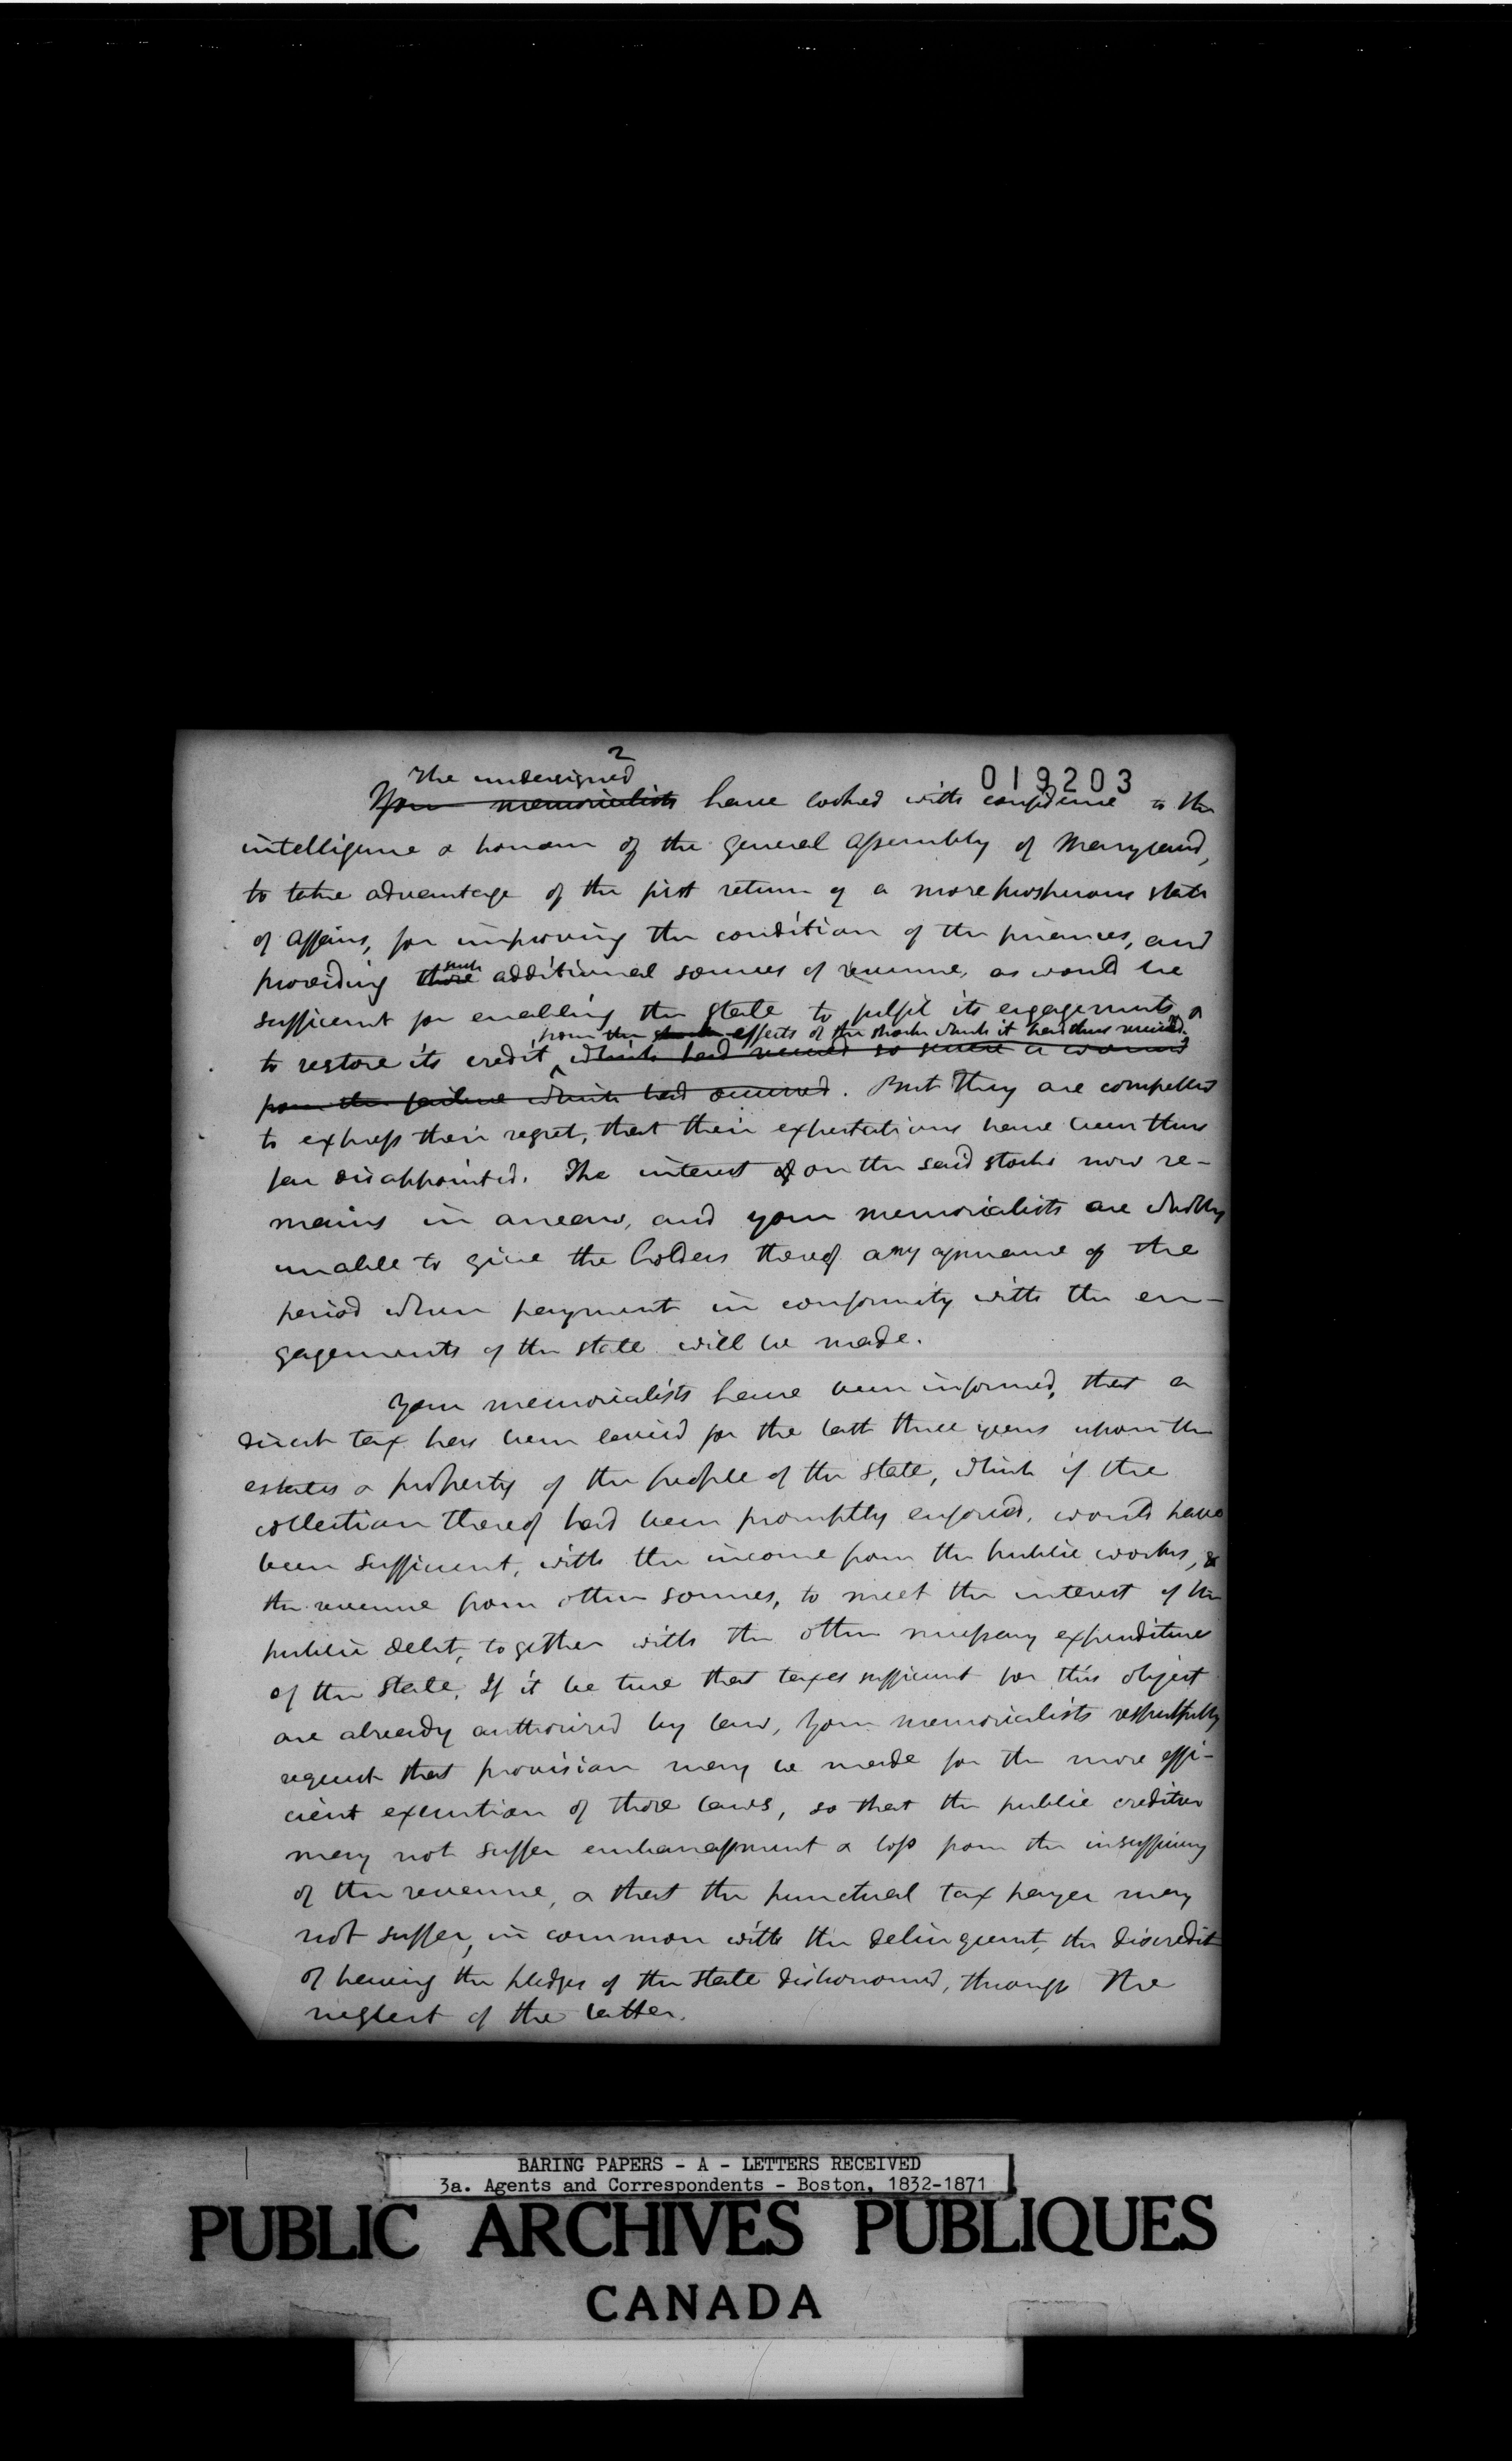 2
019203
The undersigned
Your memorialists have looked with confidence to the
intelligence & honour of the General Assembly of Maryland,
to take advantage of the first return of a more prosperous state
of affairs, for improving the condition of the finances, and
such
providing those additional sources of revenue, as would be
sufficient for enabling the state to fulfil its engagements, &
from the effects of the shocks which it had thus received.
to restore its credit, which had received so severe a wound
from the failure which had occurred. But They are compelled
to express their regret, that their expectations have been thus
far disappointed. The interest of on the said stocks now re-
mains in arrears, and your memorialists are wholly
unable to give the holders thereof any assurance of the
period when payment in conformity with the en-
gagements of the state will be made.
Your memorialists have been informed, that a
direct tax has been levied for the last three years upon the
estates & property of the people of the state, which if the
collection thereof had been promptly enforced, would have
been sufficient, with the income from the public works, &
the revenue from other sources, to meet the interest of the
public debt, together with the other necessary expenditures
of the state. If it be true that taxes sufficient for this object
are already authorized by law, your memorialists respectfully
request that provision may be made for the more effi-
cient execution of those laws, so that the public creditor
may not suffer embarrassment & loss from the insufficiency
of the revenue, & that the punctual tax payer may
not suffer, in common with the delinquent, the discredit
of having the pledges of the state dishonoured, through the
neglect of the latter.
BARING PAPERS - A - LETTERS RECEIVED
3a. Agents and Correspondents - Boston, 1832-1871
PUBLIC ARCHIVES PUBLIQUES
CANADA